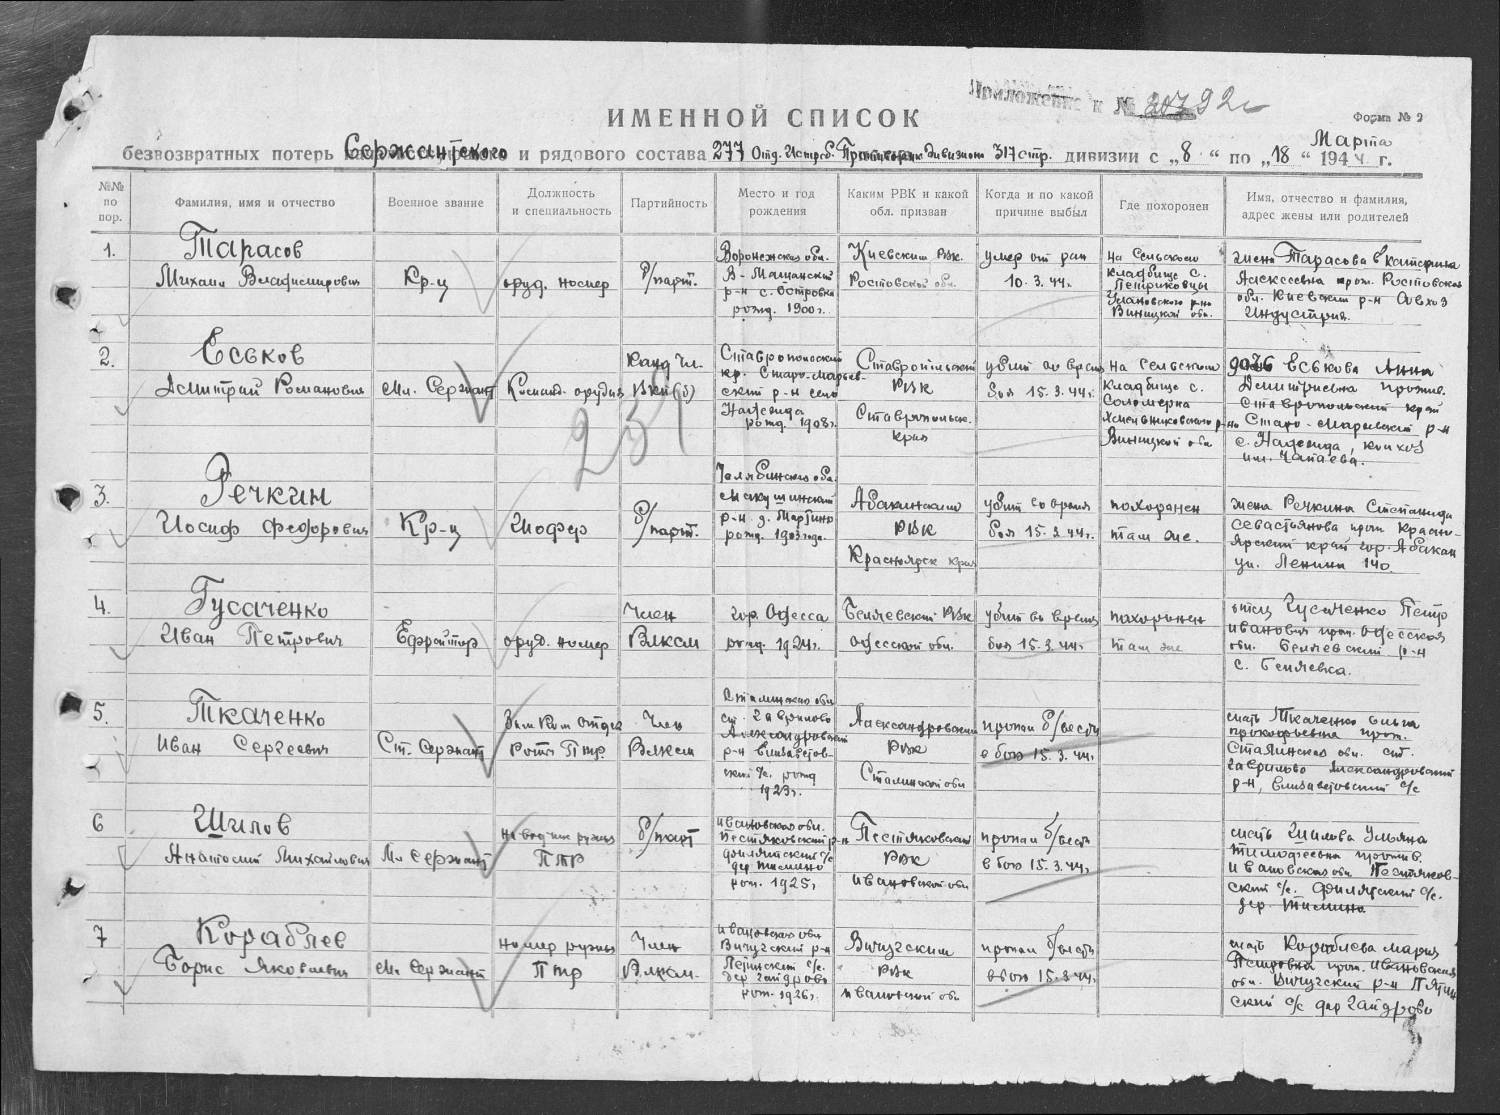 Приложение к № 20792с
ИМЕННОЙ СПИСОК
Форма № 2
безвозвратных потерь Сержантского и рядового состава 277 Отд. Истреб. дивизиона 317 стр. дивизии с „8“ по „18“ Марта 1944 г.
№№ по пор.
Фамилия, имя и отчество
Военное звание
Должность и специальность
Партийность
Место и год рождения
Каким РВК и какой обл. призван
Когда и по какой причине выбыл
Где похоронен
Имя, отчество и фамилия, адрес жены или родителей
1. Тарасов
Михаил Владимирович
Кр-ц
оруд. номер
б/парт.
Воронежская обл.
В-Мащанский
р-н с. Островки
рожд. 1900 г.
Киевским РВК
Ростовской обл.
умер от ран
10.3.44г.
на Сельском
кладбище с.
Петриковцы
Улановского р-на
Виницкой обл.
жена Тарасова Екатерина
Алексеевна прож. Ростовская
обл. Киевский р-н Совхоз
Индустрия.
2. Еськов
Дмитрий Романович
Мл. Сержант
Команд. орудия
Канд. чл.
ВКП(б)
239
Ставропольский
кр. Старо-Марьев-
ский р-н село
Надежда
рожд. 1908г.
Ставропольский
РВК
Ставропольск.
края
убит во время
боя 15.3.44г.
на Сельском
кладбище с.
Соломерна
Хмельниковского р-на
Виницкой обл.
дочь Еськова Анна
Дмитриевна прожив.
Ставропольский край
Старо-Марьевский р-н
с. Надежда, колхоз
им. Чапаева.
3. Речкин
Иосиф Федорович
Кр-ц
Шофер
б/парт.
Челябинская обл.
Макушинский
р-н д. Мартино
рожд. 1903 года.
Абаканским
РВК
Красноярск края
убит во время
боя 15.3.44г.
похоронен
там же.
жена Речкина Степанида
Севастьянова прож Красно-
ярский край гор. Абакан
ул. Ленина 140.
4. Гусаченко
Иван Петрович
Ефрейтор
оруд. номер
Член
ВЛКСМ
гор. Одесса
рожд. 1924г.
Беляевский РВК
Одесской обл.
убит во время
боя 15.3.44г.
похоронен
там же
отец Гусаченко Петр
Иванович прож. Одесская
обл. Беляевский р-н
с. Беляевка.
5. Ткаченко
Иван Сергеевич
Ст. Сержант
Зам Ком отдел
Роты ПТР.
Член
ВЛКСМ
Сталинская обл
ст. Гаврилово
Александровский
р-н Елизаветов-
ский с/с. рожд
1923г.
Александровский
РВК
Сталинской обл
пропал б/вести
в бою 15.3.44г.
мать Ткаченко Ольга
Прокофьевна прож.
Сталинская обл. ст.
Гаврилово Александровский
р-н, Елизаветовский с/с
6 Шилов
Анатолий Михайлович
Мл Сержант
наводчик ружья
ПТР
б/парт
Ивановская обл.
Пестяковский р-н
Филятский с/с
дер Тимино
рож. 1925г
Пестяковский
РВК
Ивановской обл
пропал б/вести
в бою 15.3.44г.
мать Шилова Ульяна
Тимофеевна прожив.
Ивановская обл Пестяков-
ский с/с. Филятский с/с.
дер. Тимино
7 Кораблев
Борис Яковлевич
Мл. Сержант
номер ружья
ПТР
Член
ВЛКСМ.
Ивановская обл
Вичугский р-н
с/с.
дер Гайдрово
рож. 1926г.
Вичугским
РВК
Ивановской обл.
пропал б/вести
в бою 15.3.44г.
мать Кораблева Мария
Петровна прож. Ивановская
обл. Вичугский р-н
ский с/с дер Гайдрово